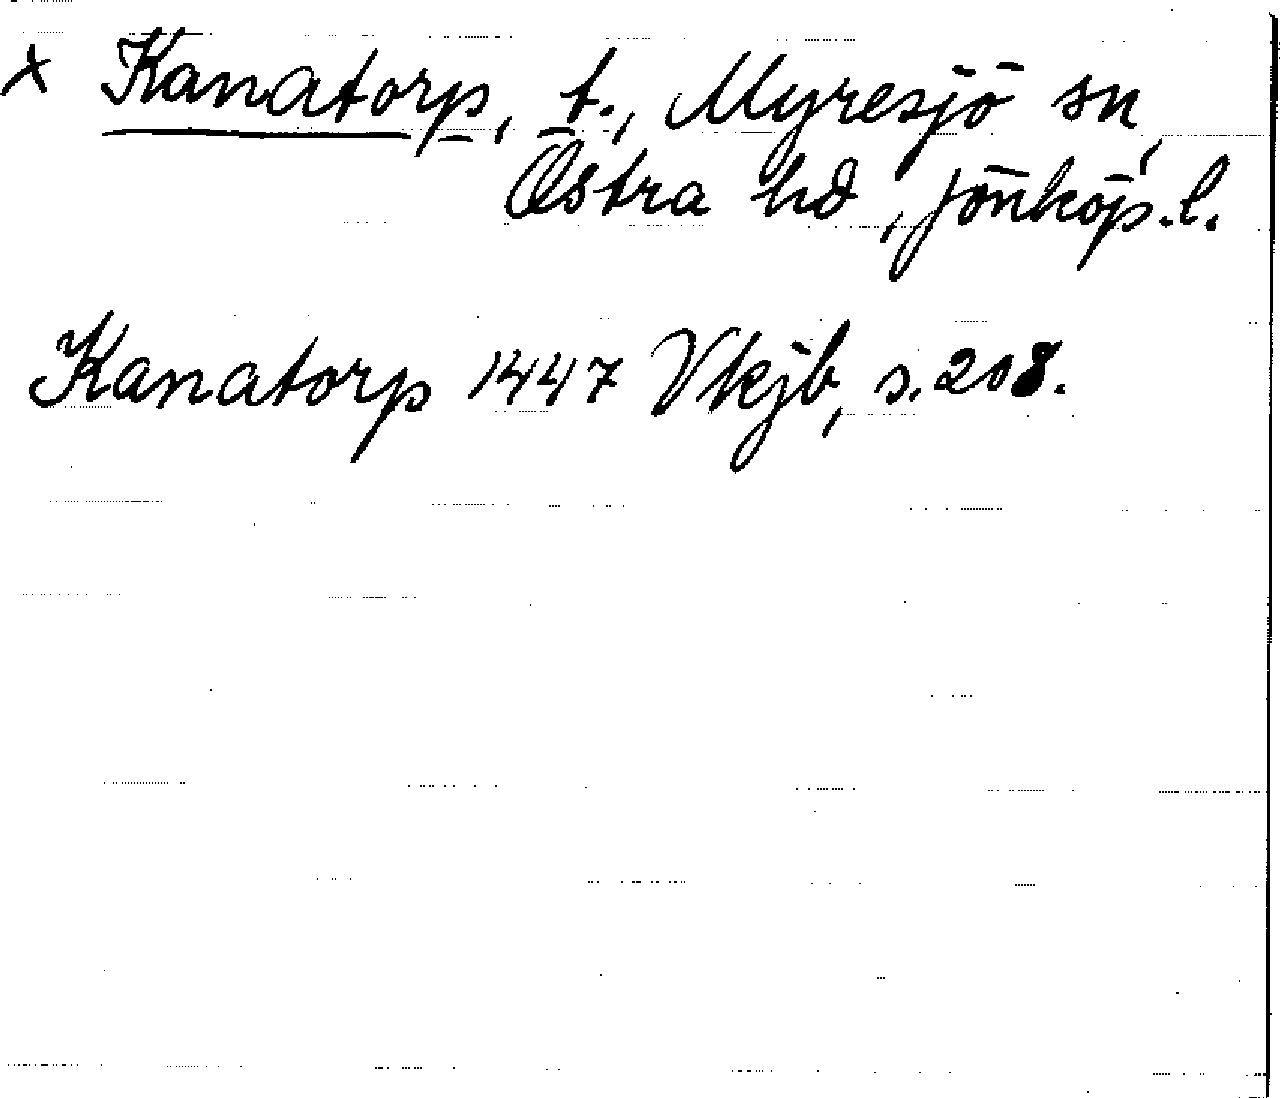 x Kanatorp, t., Myresjö sn,
Östra hd, Jönköp. l.
Kanatorp 1447 Vkjb, s. 208.